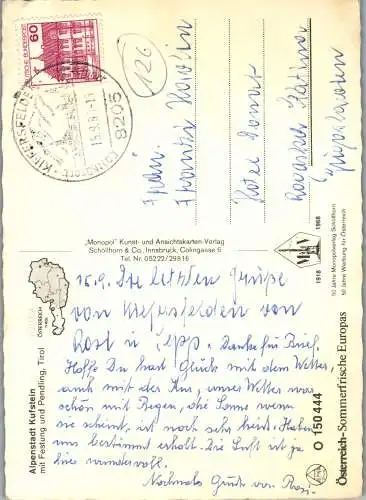 60
DEUTSCHE BUNDESPOST
KIEFERSFELDEN
8205
126
Frln.
Hotel Donar
Rogaška Slatina
Jugoslavien
"Monopol" Kunst- und Ansichtskarten-Verlag
Schöllhorn & Co., Innsbruck, Colingasse 6
Tel. Nr. 05222/29816
1918 1968
50 Jahre Monopolverlag Schöllhorn
50 Jahre Werbung für Österreich
ÖSTERREICH
TIROL
Alpenstadt Kufstein
mit Festung und Pendling, Tirol
15.9. Die letzten Grüße
von Kiefersfelden von
Rosi u. Sepp. Danke für Brief.
Hoffe Du hast Glück mit dem Wetter,
auch mit der Kur, unser Wetter war
schön mit Regen, die Sonne wenn
sie scheint, ist noch sehr heiß. Haben
uns bestimmt erholt. Die Luft ist ja
hier wundervoll.
Nochmals Gruß von Rosi
O 150 444
Österreich-Sommerfrische Europas